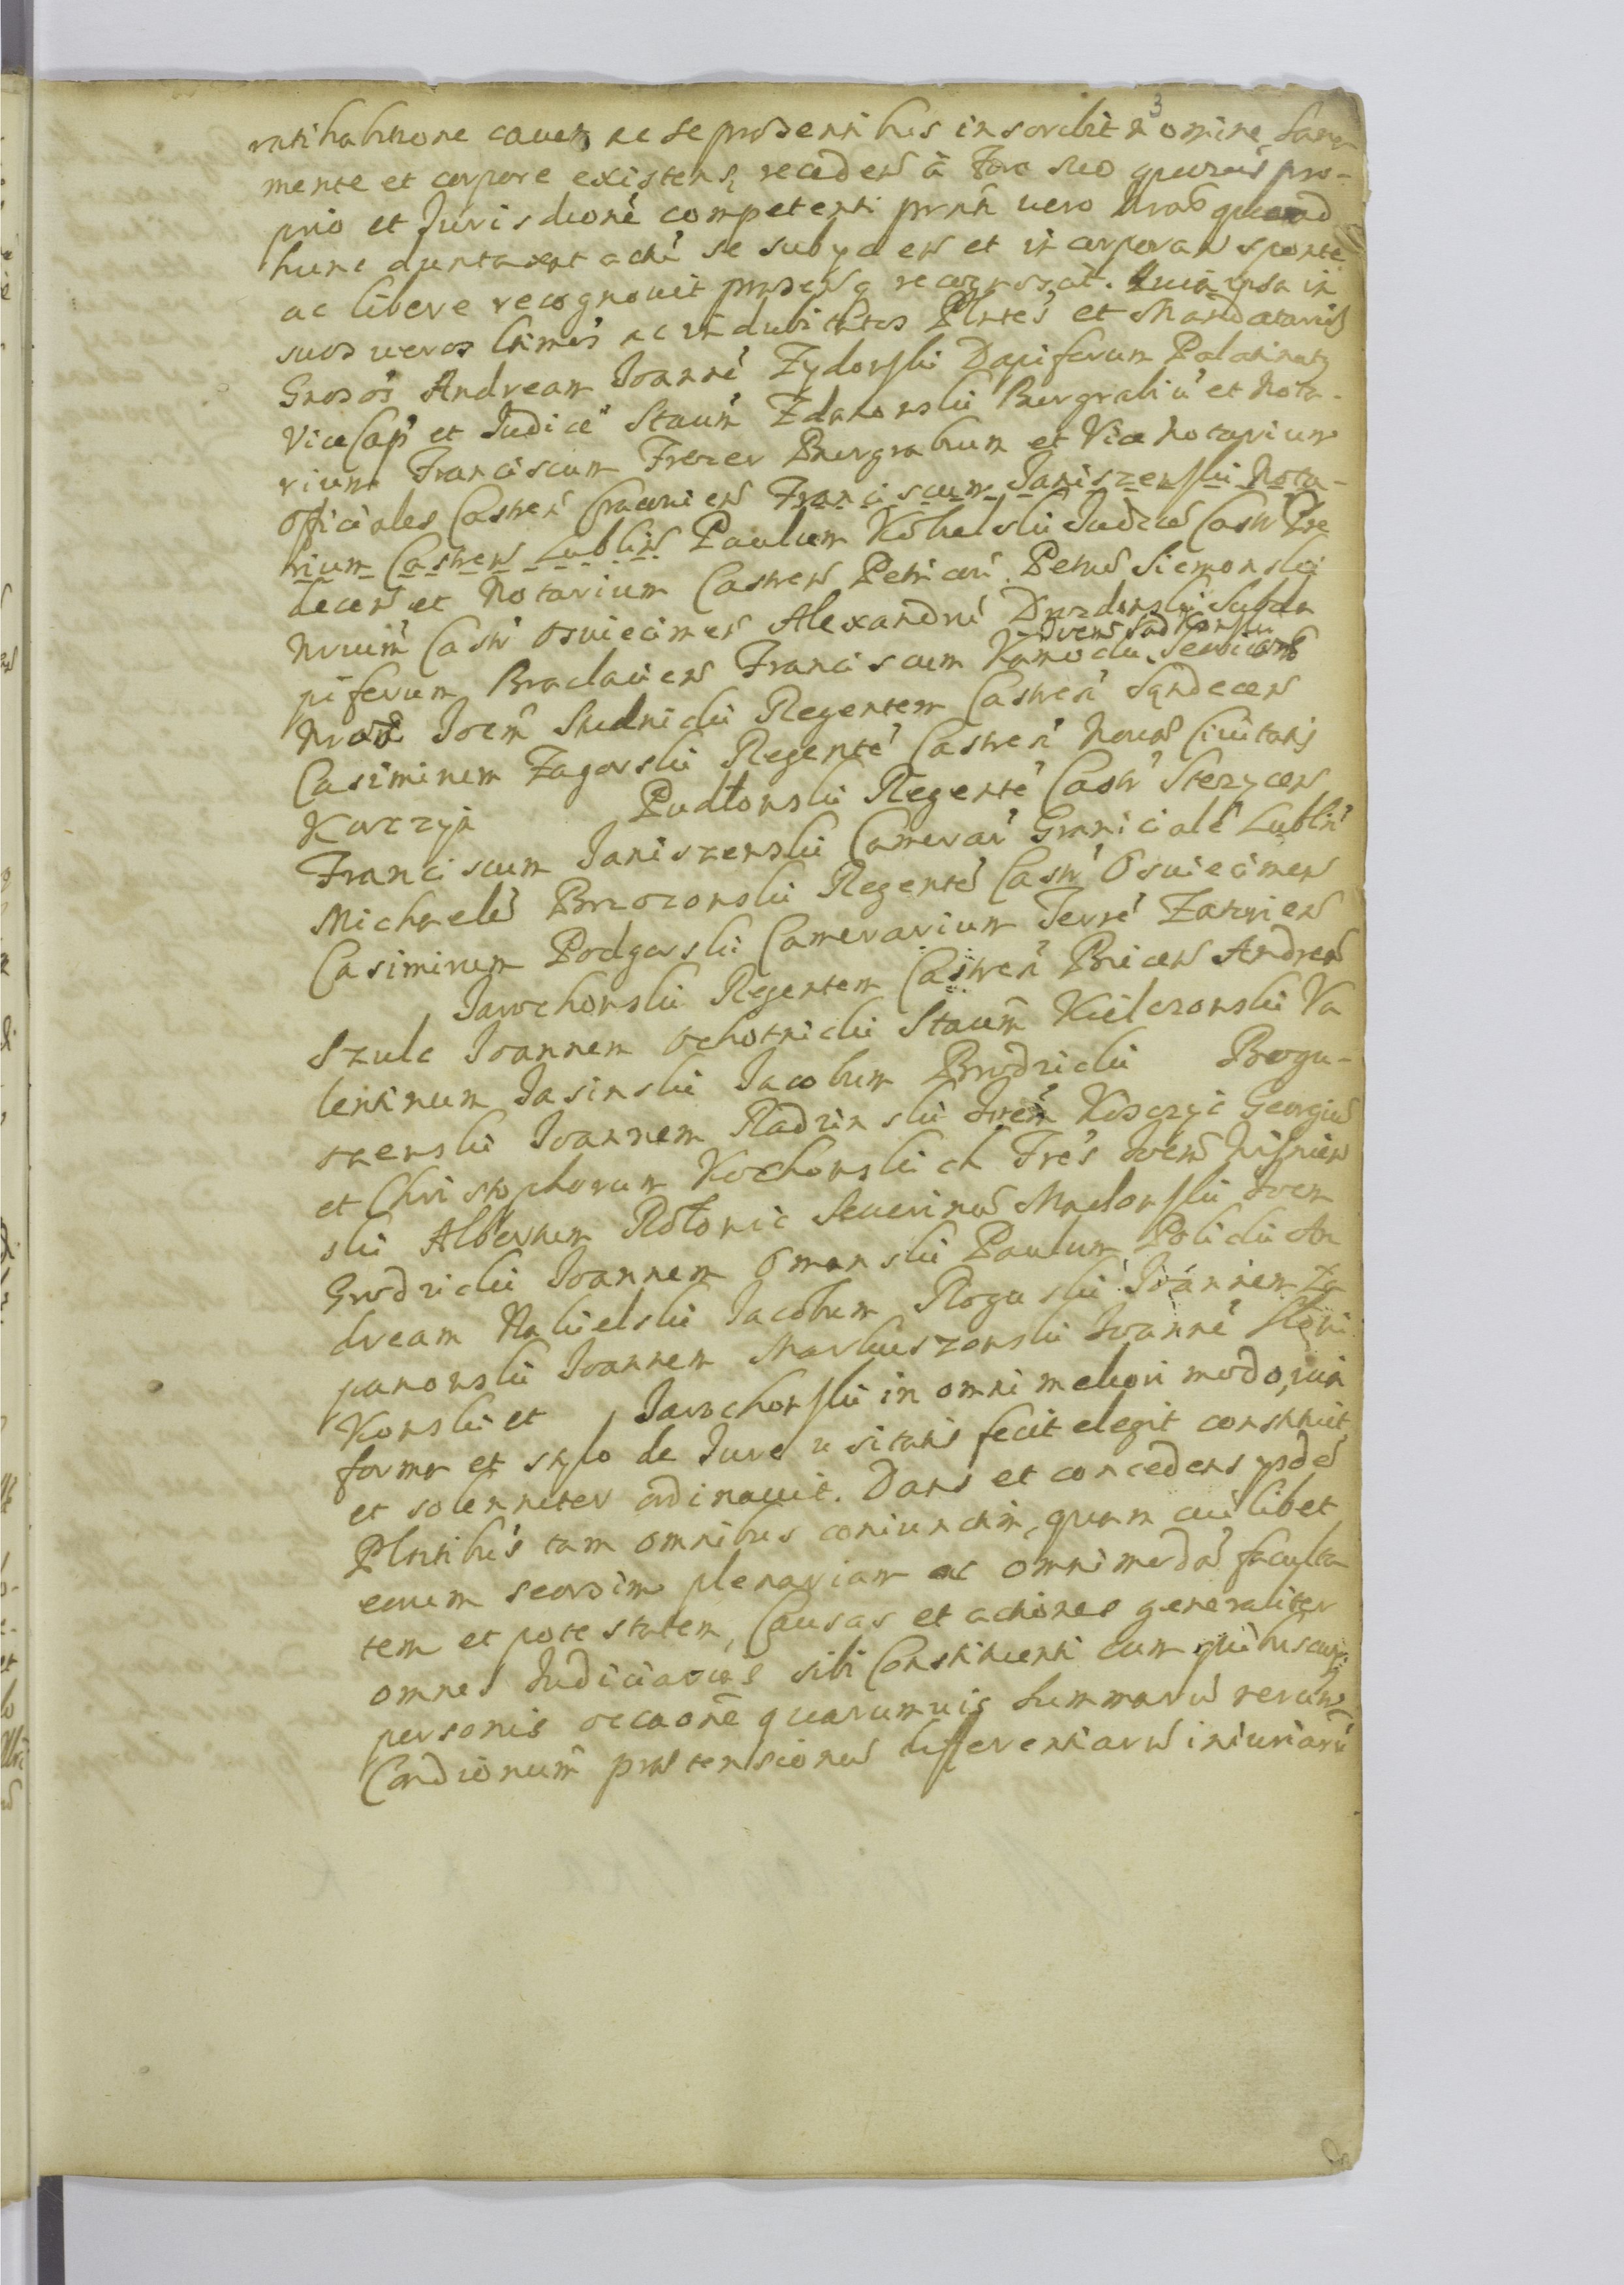 3
ratihabitione cavet, ac se praesentibus inscribit nomine, sana
mente et corpore existens, recedens à Foro suo quovis pro-
prio et Jurisdione competenti prnti vero Nrae quoad
hunc duntaxat actu se subyciens et incorporans sponte
ac libere recognovit praesensq recognoscit. Quia ipsa in
suos veros ltimos ac indubitatos Plntes et Mandatarios
Gnosos Andream Joanne Zydowski Dapiferum Palatinatus
Vice Cap et Judice Staum Zdanowski Burgrabiu et Nota-
rium Franciscum Frezer Burgrabium et Vice Notarium
officiales Castren Cracovien Franciscum Janiszewski Nota-
rium Castren Lublin Paulum Kobielski Judice Castr
decen et Notarium Castren Petricov. Petru Siemonski
Notarium Castr Osviecimen Alexandru Drozdowski Subda
piferum Braclavien Franciscum Kamocki
Joem Sudnicki Regentem Castren Sandecen
Casimirum Zagorski Regente Castren Novae Civitatis
Korczyn Pudłowski Regente Castr Stezycen
Franciscum Janiszewski Camerar Graniciale Lublin
Michaele Brzozowski Regente Castr Osviecimen
Casimirum Podgorski Camerarium Terre Zatorien
Jarochowski Regentem Castren Bricen Andrea
Szulc Joannem Ochotnicki Staum Kielczowski Va
lentinum Jasinski Jacobum Brodzicki Bogu-
szewski Joannem Radzinski Joem Koszczyc Georgiu
et Christophorum Kochowskich Fres Joem Wisniew
ski Albertum Rotowic Severinu Madowski Joem
Grodzicki Joannem Omanski Paulum Policki An
dream Nakielski Jacobum Roguski Joannem Za
panowski Joannem Markuszowski Joanne Słowi
kowski et Jarochowski in omni meliori modo, via
forma et stylo de Jure usitatis fecit elegit constituit
et solenniter ordinavit. Dans et concedens ysde
Plntibus tam omnibus coniunctim, quam cuilibet
eorum seorsim plenariam ac omnimoda faculta
tem et potestatem, Causas et actiones generaliter
omnes Judiciarias sibi Constituenti cum quibuscunq
personis occaone quarumvis summaru reru
Condicionum praetensionu differentiaru iniuriaru